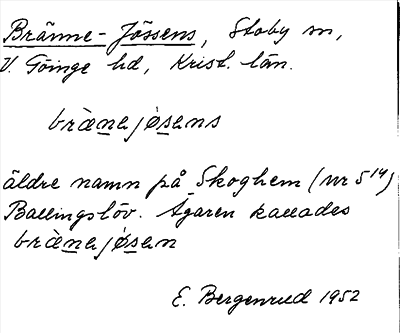 Bränne-Jössens, Stoby sn,
V. Göinge hd, Krist. län.
brä̀nejø̀sens
äldre namn på Skoghem (nr 5¹⁴)
Ballingslöv. Ägaren kallades
brä̀nejø̀sen
E. Bergenrud 1952